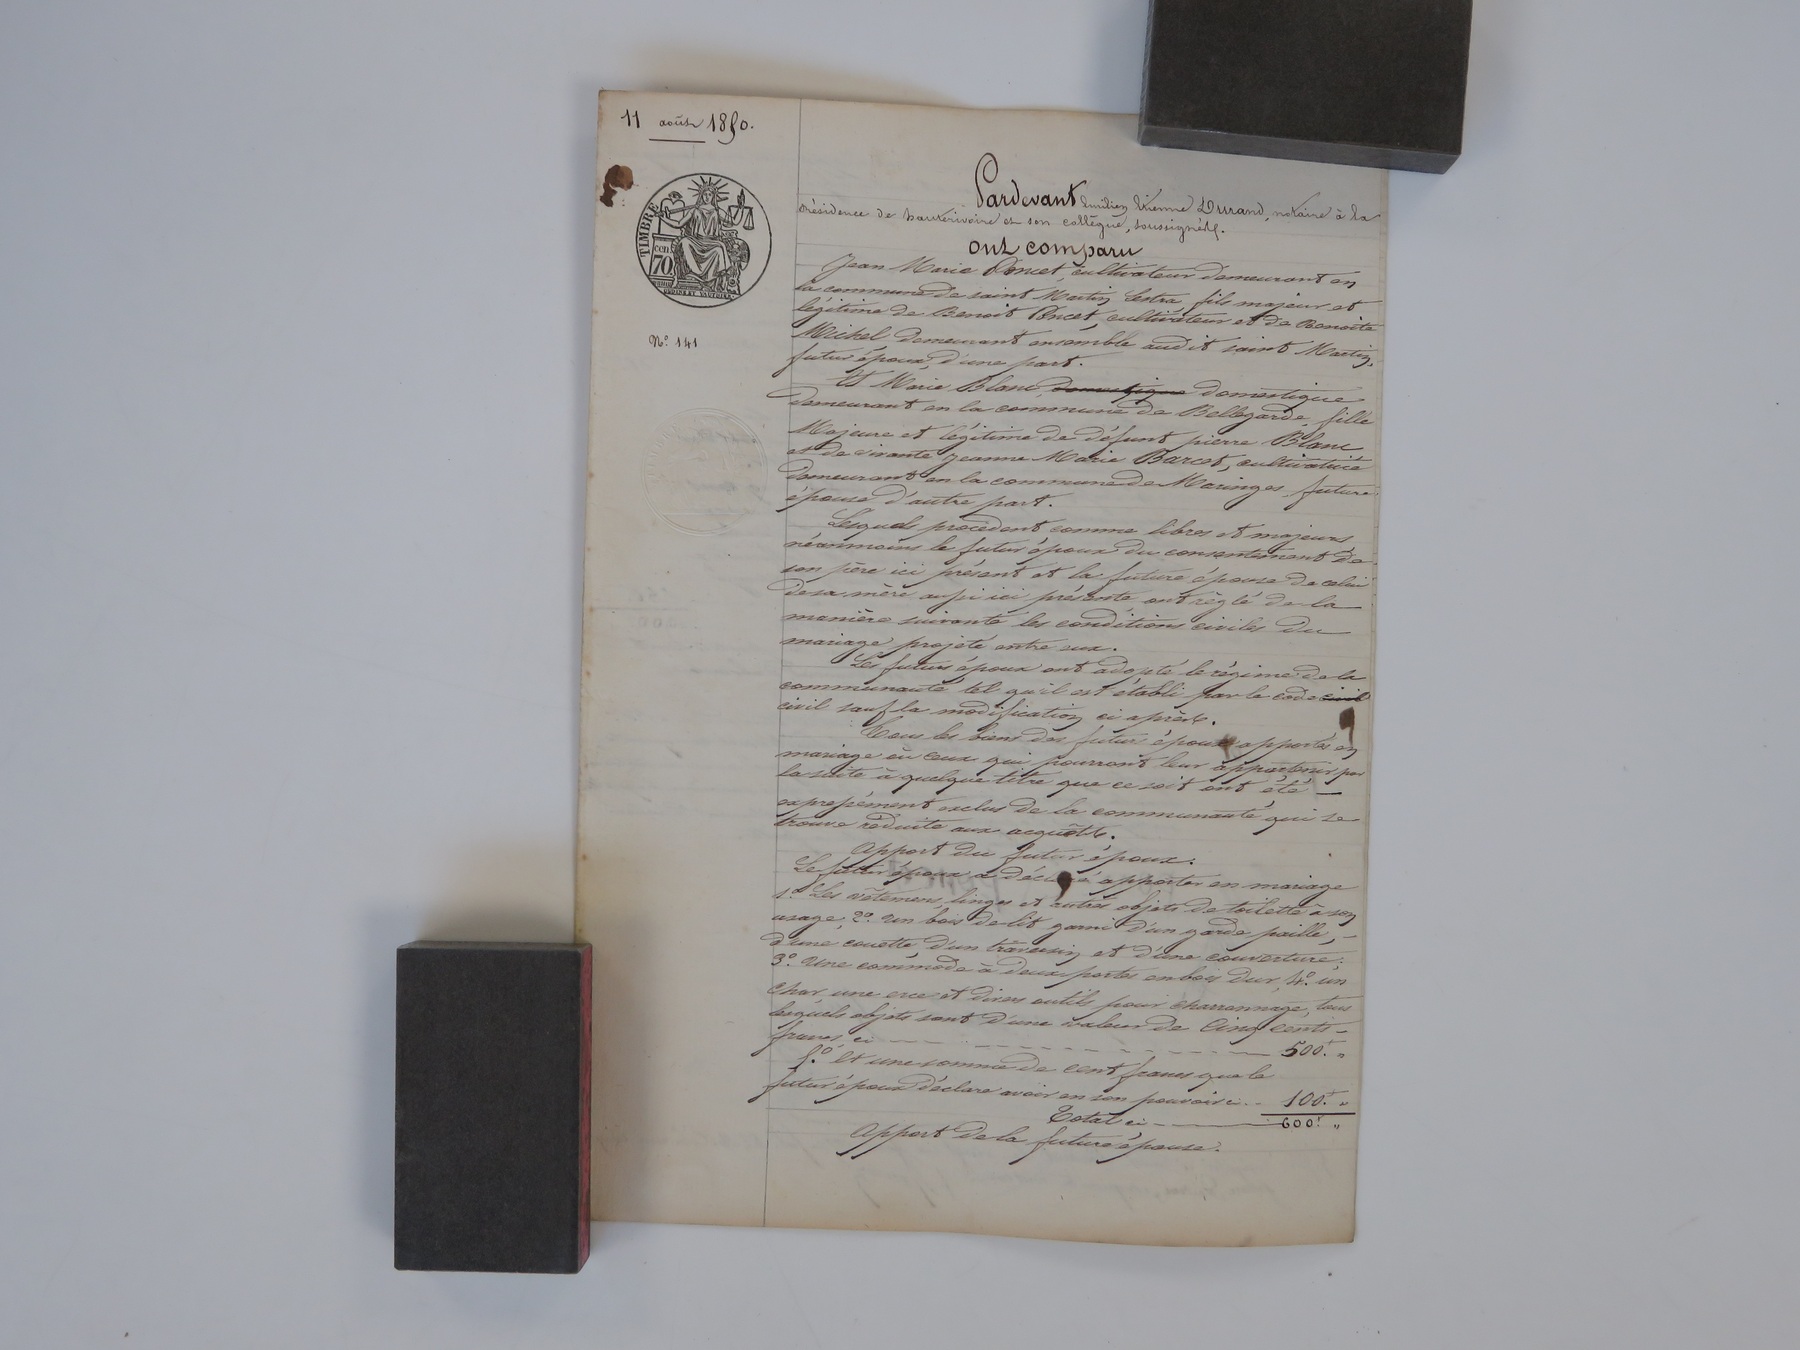 11 août 1850.
TIMBRE
cen
70
N° 141
Pardevant Emilien Etienne Durand, notaire à la
résidence de hauterivoire et son collègue, soussignés.
ont comparu
Jean Marie Poncet, cultivateur demeurant en
la commune de saint Martin Lestra, fils majeur et
légitime de Benoit Poncet, cultivateur et de Benoite
Michel demeurant ensemble audit saint Martin,
futur époux, d'une part.
Et Marie Blanc, domestique domestique
demeurant en la commune de Bellegarde, fille
Majeure et légitime de défunt pierre Blanc
et de vivante Jeanne Marie Barcet, cultivatrice
demeurant en la commune de Maringes, future
épouse d'autre part.
Lesquels procèdent comme libres et majeurs
néanmoins le futur époux du consentement de
son père ici présent et la future épouse de celui
de sa mère aussi ici présente ont réglé de la
manière suivante les conditions civiles du
mariage projeté entre eux.
Les futurs époux ont adopté le régime de la
communauté tel qu'il est établi par le code civil
civil sauf la modification ci après.
Tous les biens des futur époux apportés en
mariage où ceux qui pourront leur appartenir par
la suite à quelque titre que ce soit ont été
expressément exclus de la communauté qui se
trouve réduite aux acquêts.
Apport du futur époux.
Le futur époux a déclaré apporter en mariage
1° Les vêtemens, linges et autres objets de toilette à son
usage, 2° un bois de lit garni d'un garde paille,
d'une couette, d'un traversin et d'une couverture,
3° Une commode à deux portes en bois dur, 4° un
char une erce et divers outils pour charronnage, tous
lesquels objets sont d'une valeur de Cinq cents
francs, ci 500f. "
5° Et une somme de cent francs que le
futur époux déclare avoir en son pouvoir ci 100f. "
Total ci 600f. "
Apport de la future épouse.